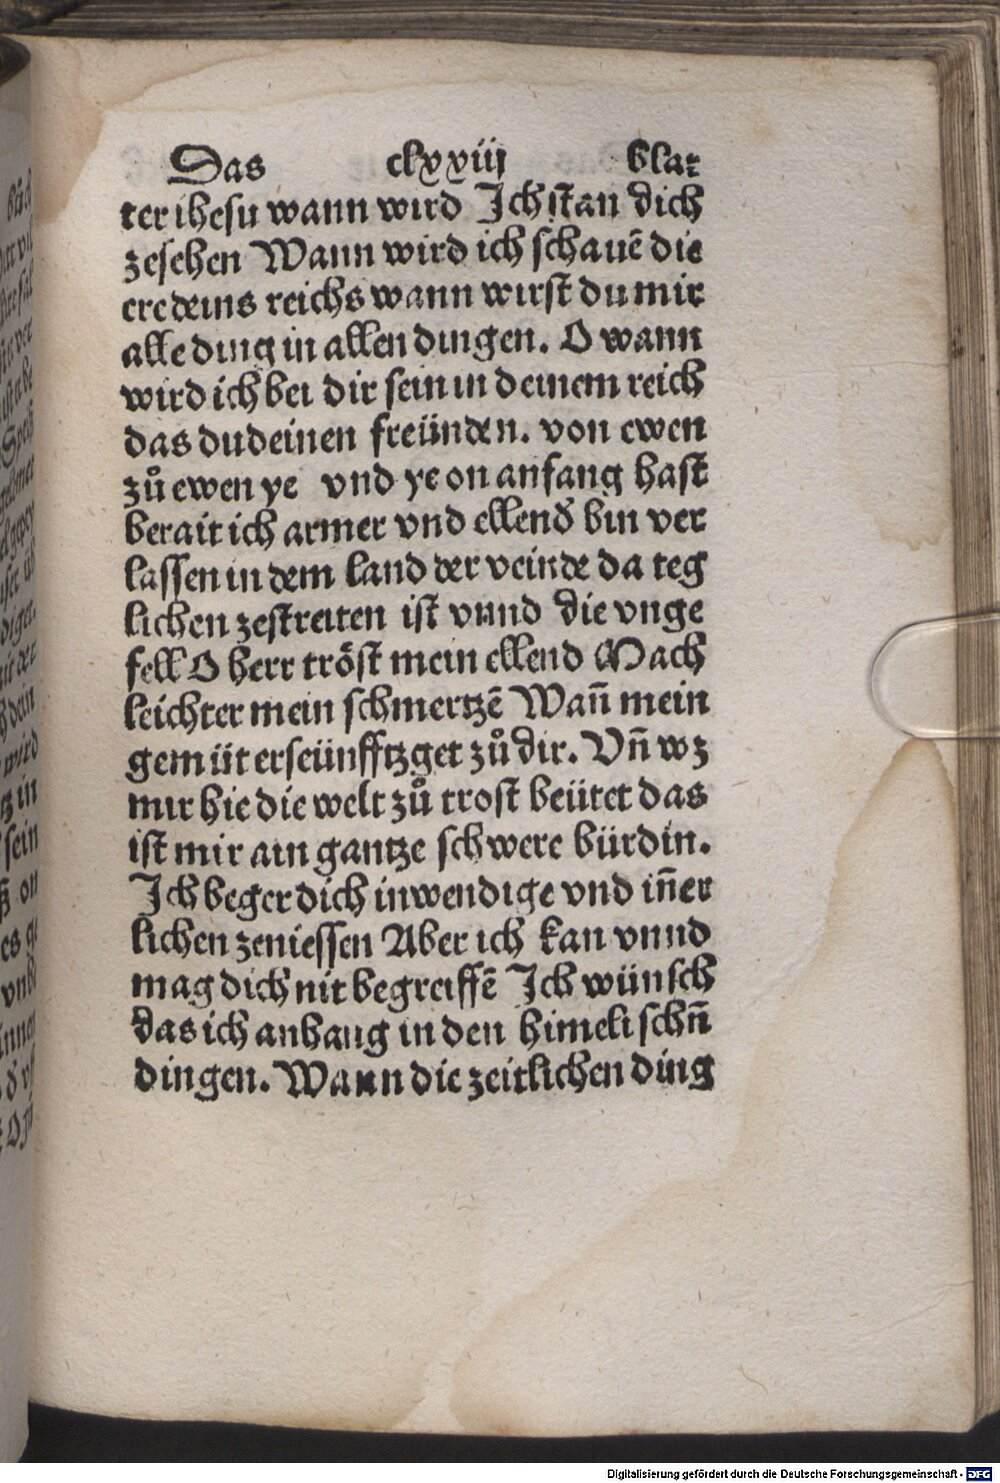 Das clxxiij blat
ter ihesu wann wird Ich stan dich
zesehen Wann wird ich schauē die
ere deins reichs wann wirst du mir
alle ding in allen dingen. O wann
wird ich bei dir sein in deinem reich
das du deinen freünden. von ewen
zů ewen ye vnd ye on anfang hast
berait ich armer vnd ellend bin ver
lassen in dem land der veinde da teg
lichen zestreiten ist vnnd die vnge
fell O herr tröst mein ellend Mach
leichter mein schmertzē Wañ mein
gemüt erseünfftzget zů dir. Vñ wz
mir hie die welt zů trost beütet das
ist mir ain gantze schwere bürdin.
Ich beger dich inwendige vnd iñer
lichen zeniessen Aber ich kan vnnd
mag dich nit begreiffē Ich wünsch
das ich anhang in den himelischñ
dingen. Wann die zeitlichen ding
Digitalisierung gefördert durch die Deutsche Forschungsgemeinschaft - DFG